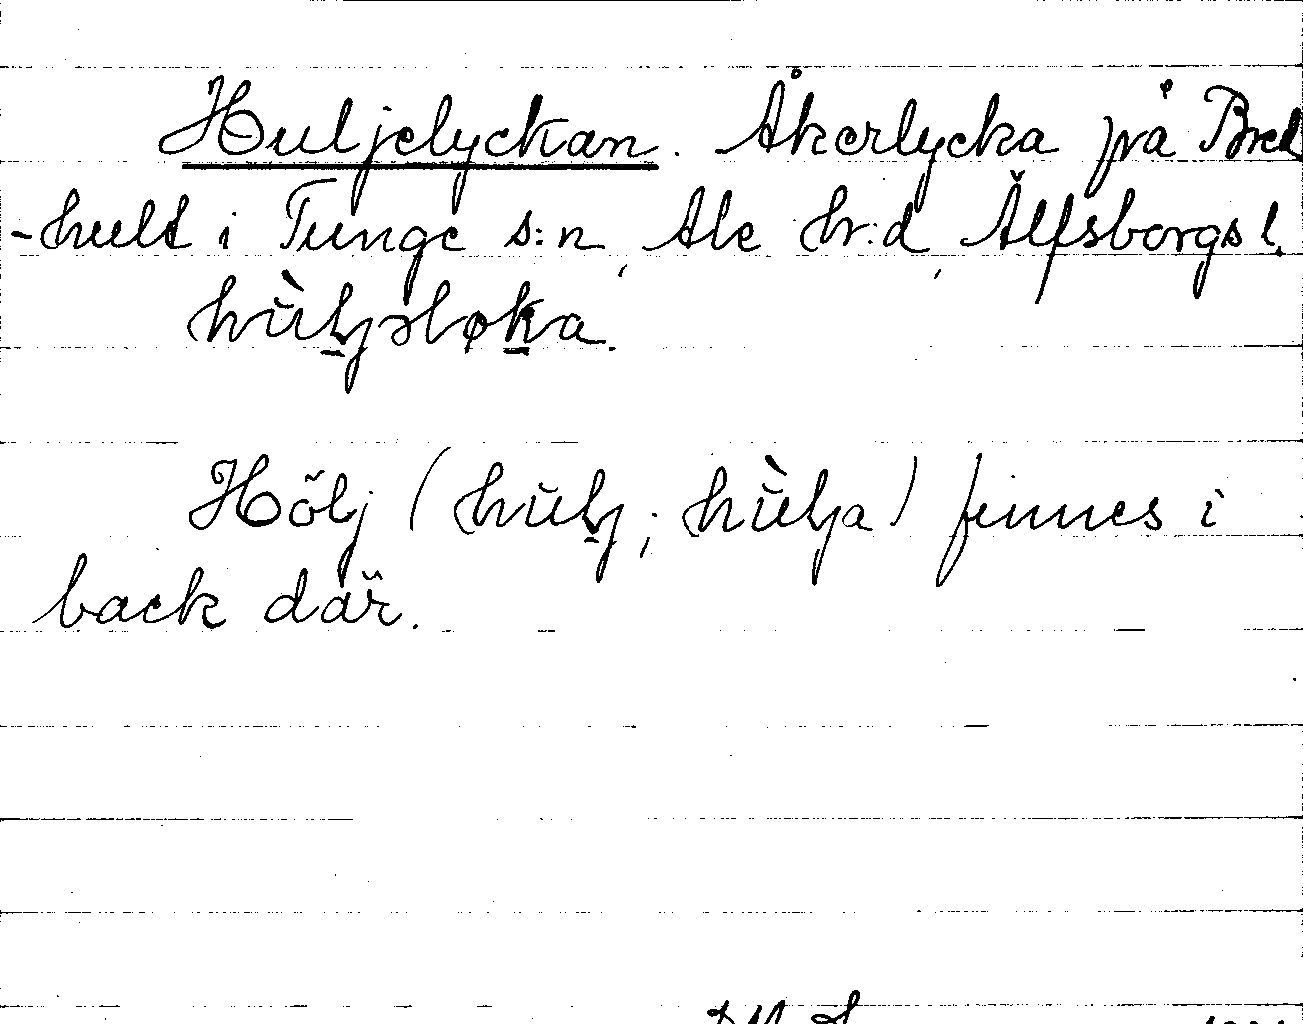 Huljelyckan. Åkerlycka på Bred
-hult i Tunge s:n, Ale hr:d, Älfsborgs l.
hùljəløka.
Hölj (hŭlj; hŭ̀lja) finnes i
back där.